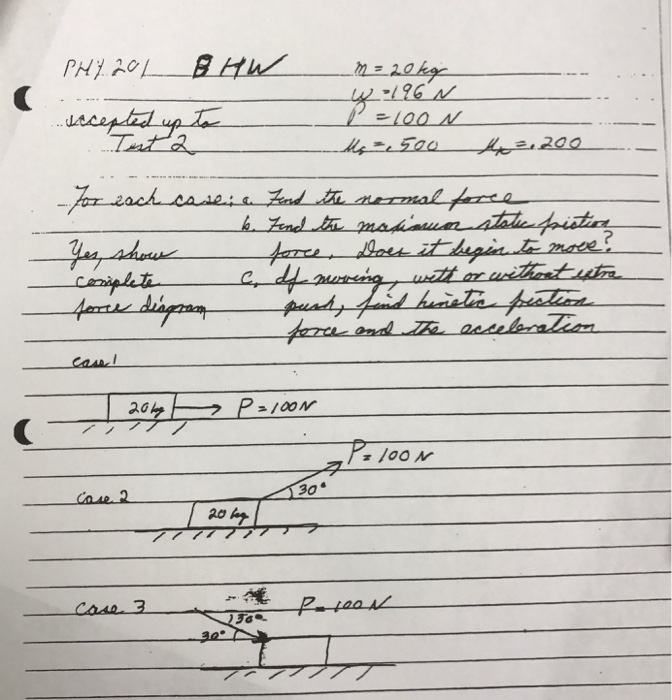 PHY 201 BHW m = 20 kg
w = 196 N
accepted up to P = 100 N
Test 2 μs = .500 μk = .200
For each case: a. Find the normal force
b. Find the maximum static friction
Yes, show force. Does it begin to move?
complete c. If moving, with or without extra
force diagram push, find kinetic friction
force and the acceleration
Case 1
20 kg P = 100 N
P = 100 N
30°
Case 2
20 kg
Case 3 P = 100 N
30°
30°